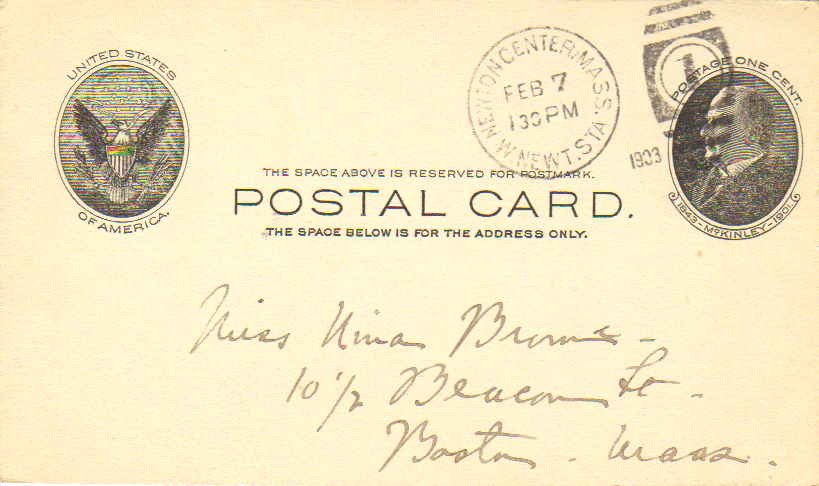 UNITED STATES
OF AMERICA.
NEWTON CENTER, MASS.
FEB 7
130 PM
W. NEWT. STA.
1
1903
POSTAGE ONE CENT.
1843-McKINLEY-1901.
THE SPACE ABOVE IS RESERVED FOR POSTMARK.
POSTAL CARD.
THE SPACE BELOW IS FOR THE ADDRESS ONLY.
Miss Nina Browne
10 1/2 Beacon St.
Boston. Mass.